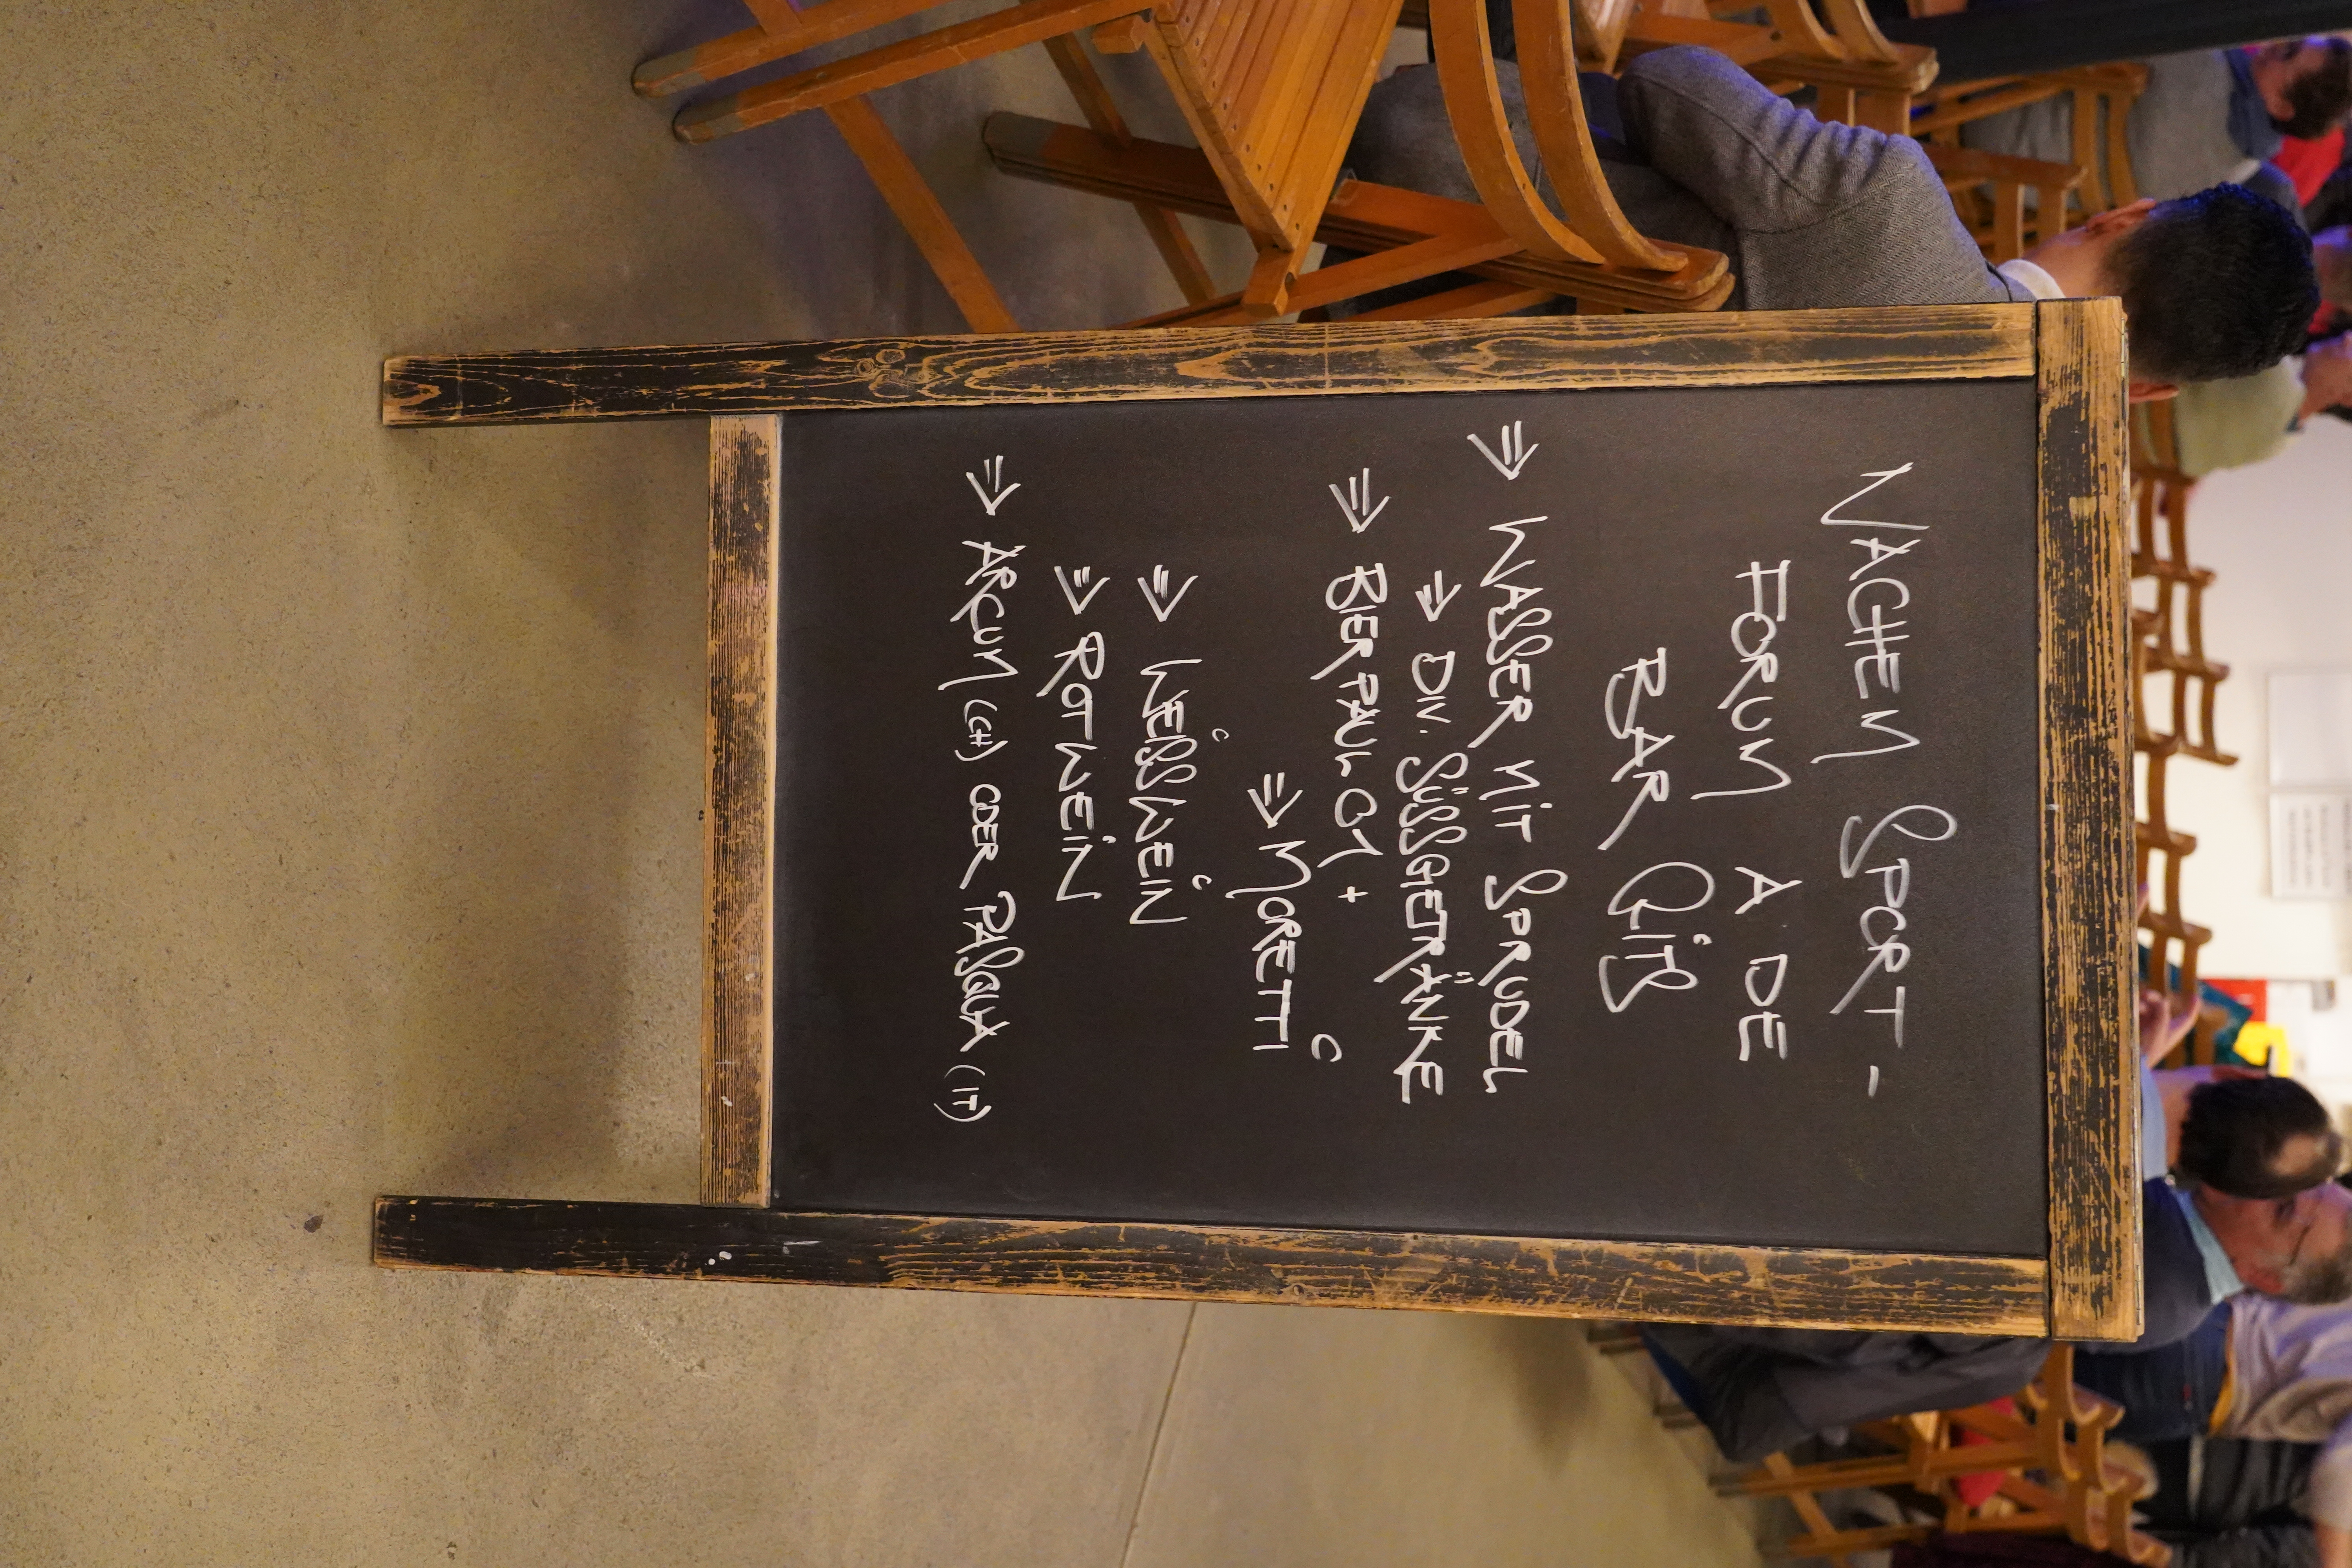 NACHEM SPORT-
FORUM A DE
BAR GITS
⇒ WASSER MIT SPRUDEL
⇒ DIV. SÜSSGETRÄNKE
⇒ BIER PAUL 01 +
⇒ MORETTI
⇒ WEISSWEIN
⇒ ROTWEIN
⇒ ARCUM (CH) ODER PASQUA (IT)